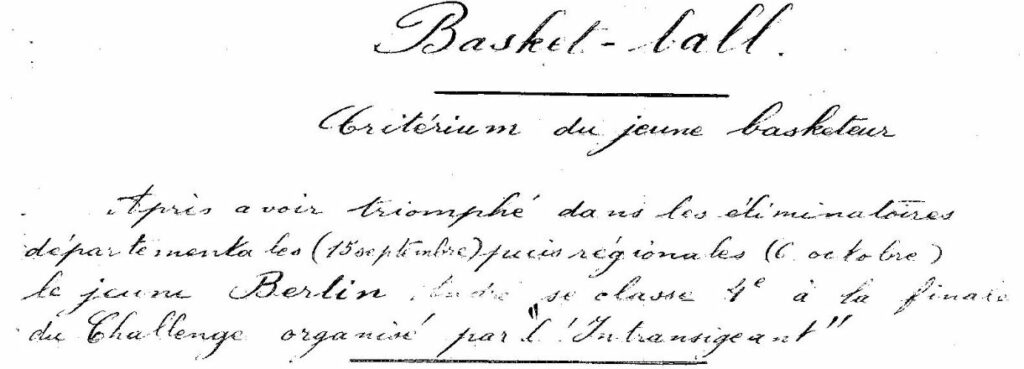 Basket-ball.
Critérium du jeune basketeur
Après avoir triomphé dans les éliminatoires
départementales (15 septembre) puis régionales (6 octobre)
le jeune Berlin André se classe 4e à la finale
du Challenge organisé par "l'Intransigeant"